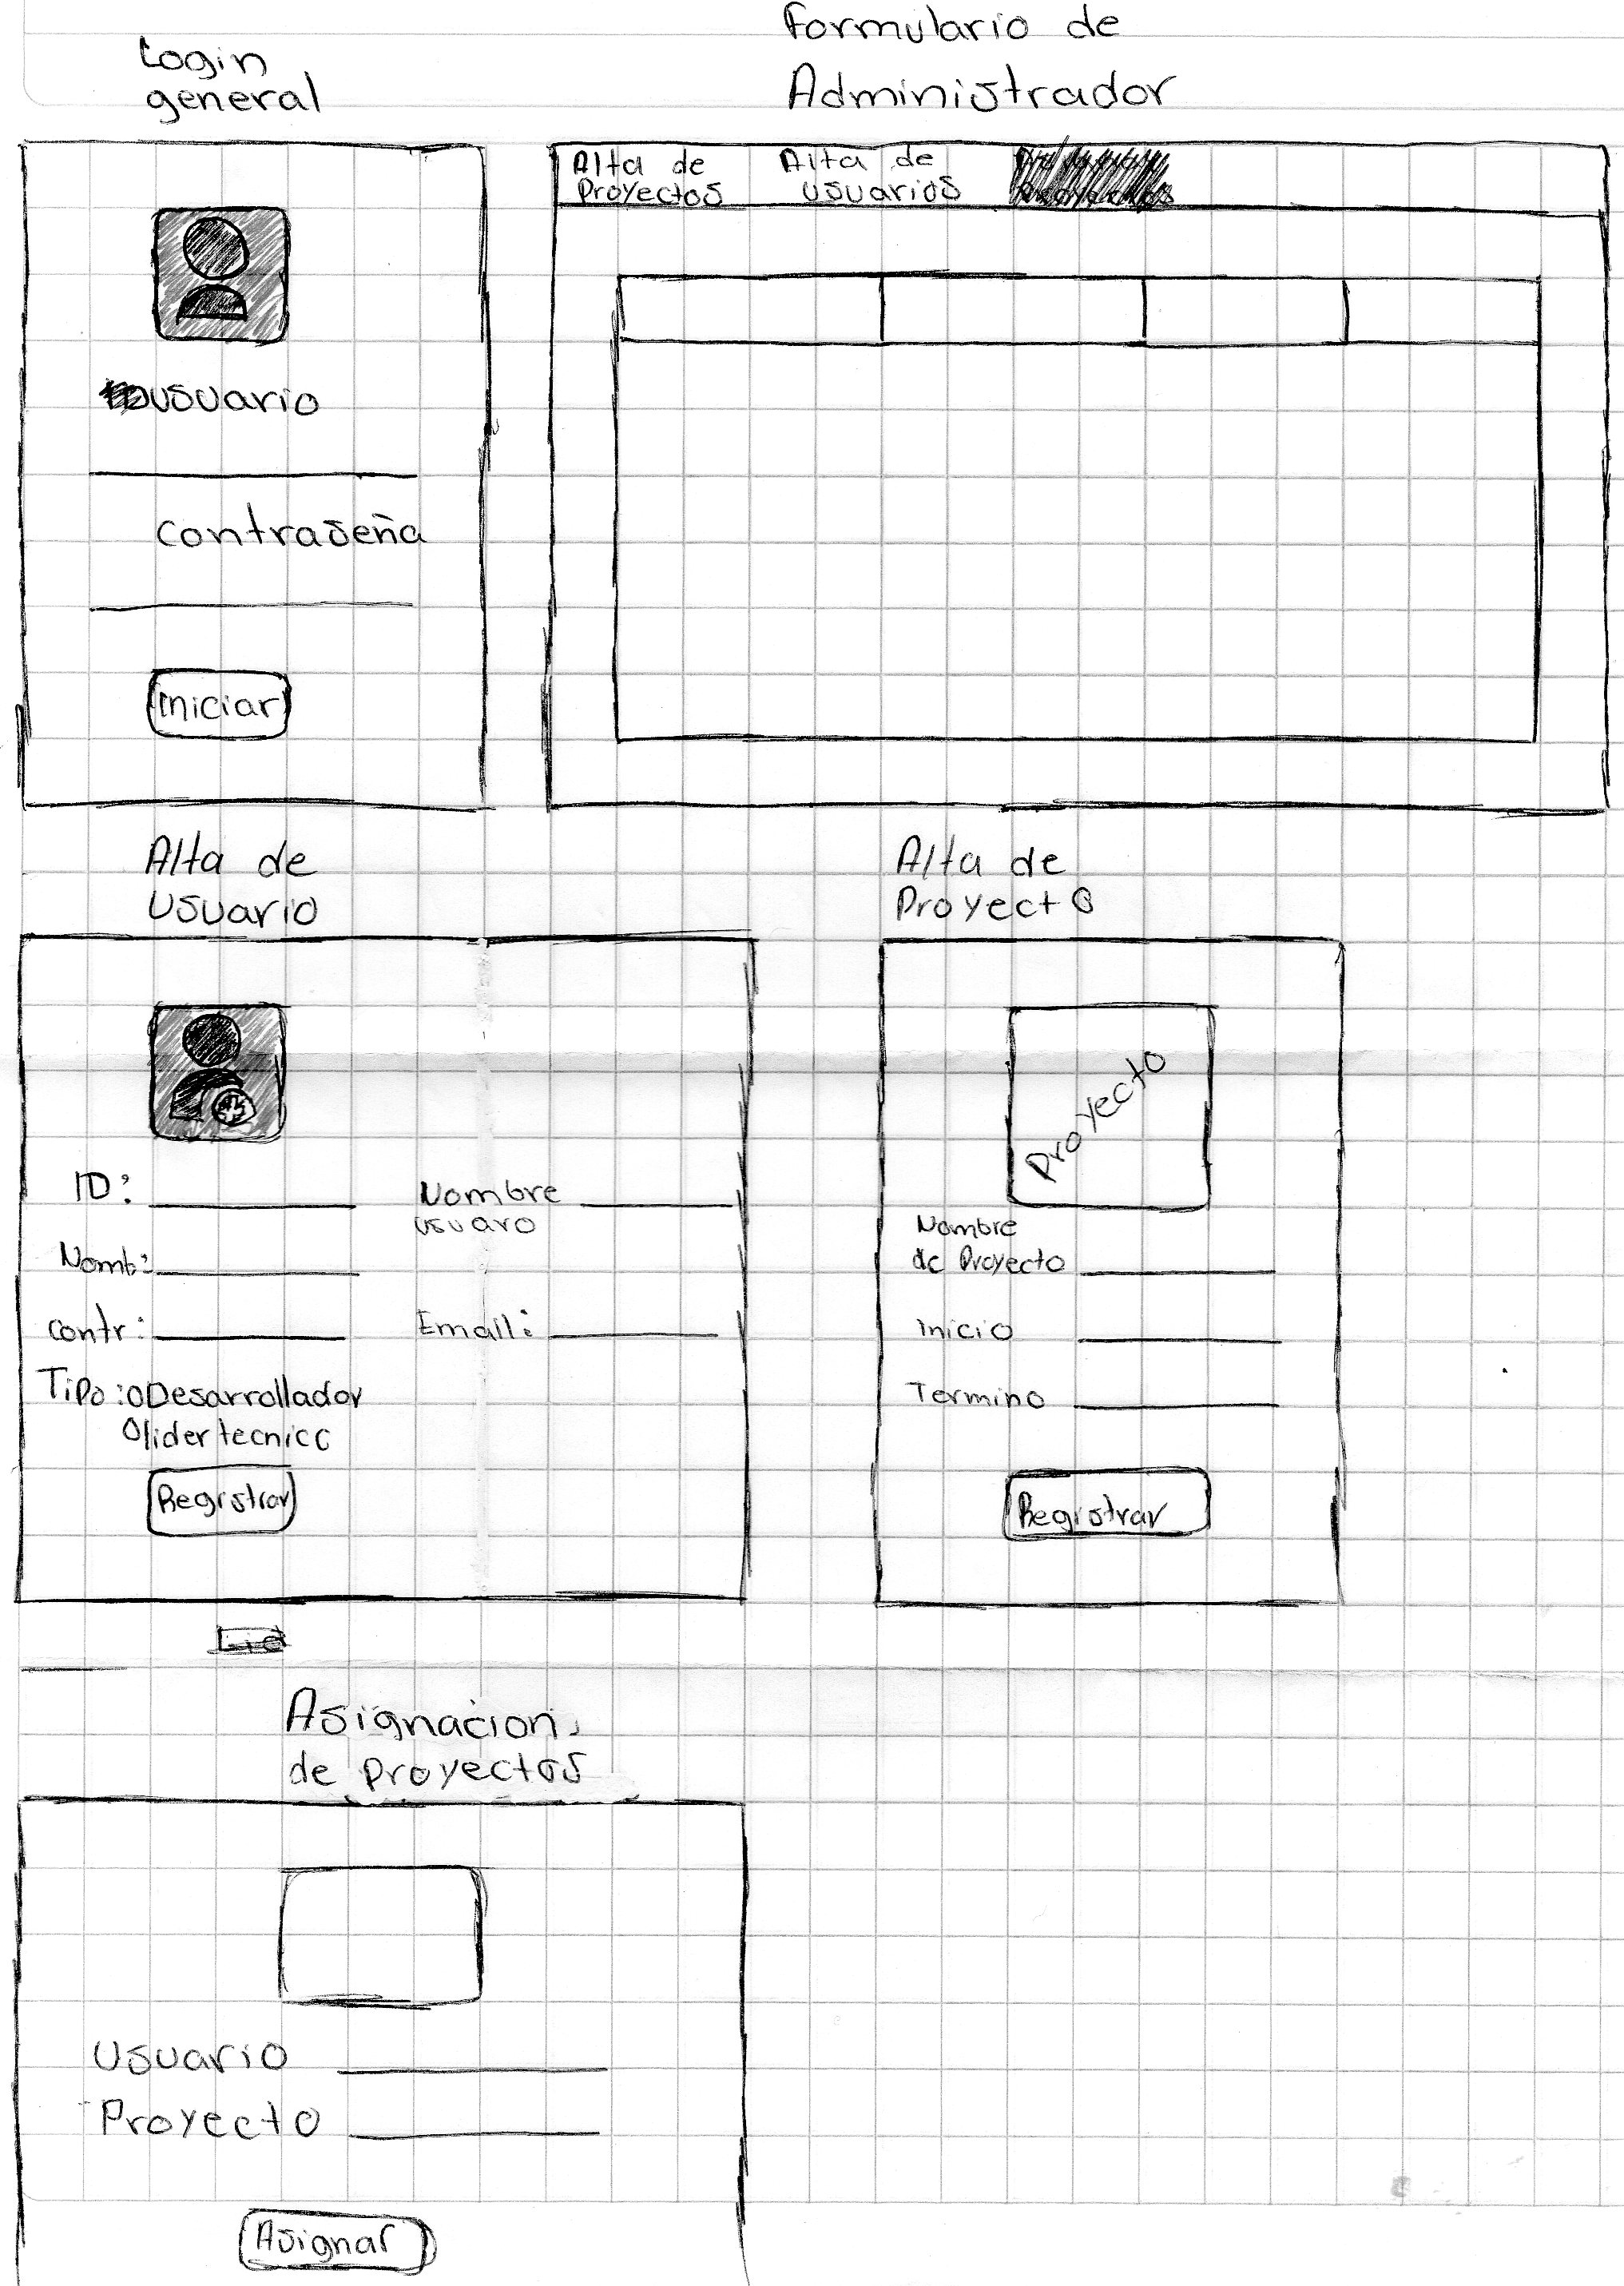 Login
general
Formulario de
Administrador
Alta de
Proyectos
Alta de
usuarios
usuario
contraseña
Iniciar
Alta de
Usuario
ID:
Nombre
usuaro
Nomb:
contr:
Email:
Tipo: O Desarrollador
O lider tecnico
Registrar
Alta de
Proyecto
Proyecto
Nombre
de Proyecto
Inicio
Termino
Registrar
Lid
Asignacion
de Proyectos
Usuario
Proyecto
Asignar